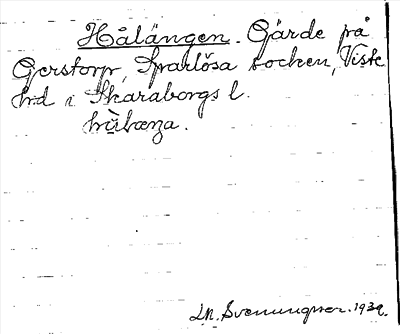 Hålängen. Gärde på
Gerstorp, Sparlösa socken, Viste
hrd i Skaraborgs l.
L.N. Svenungsson. 1939.